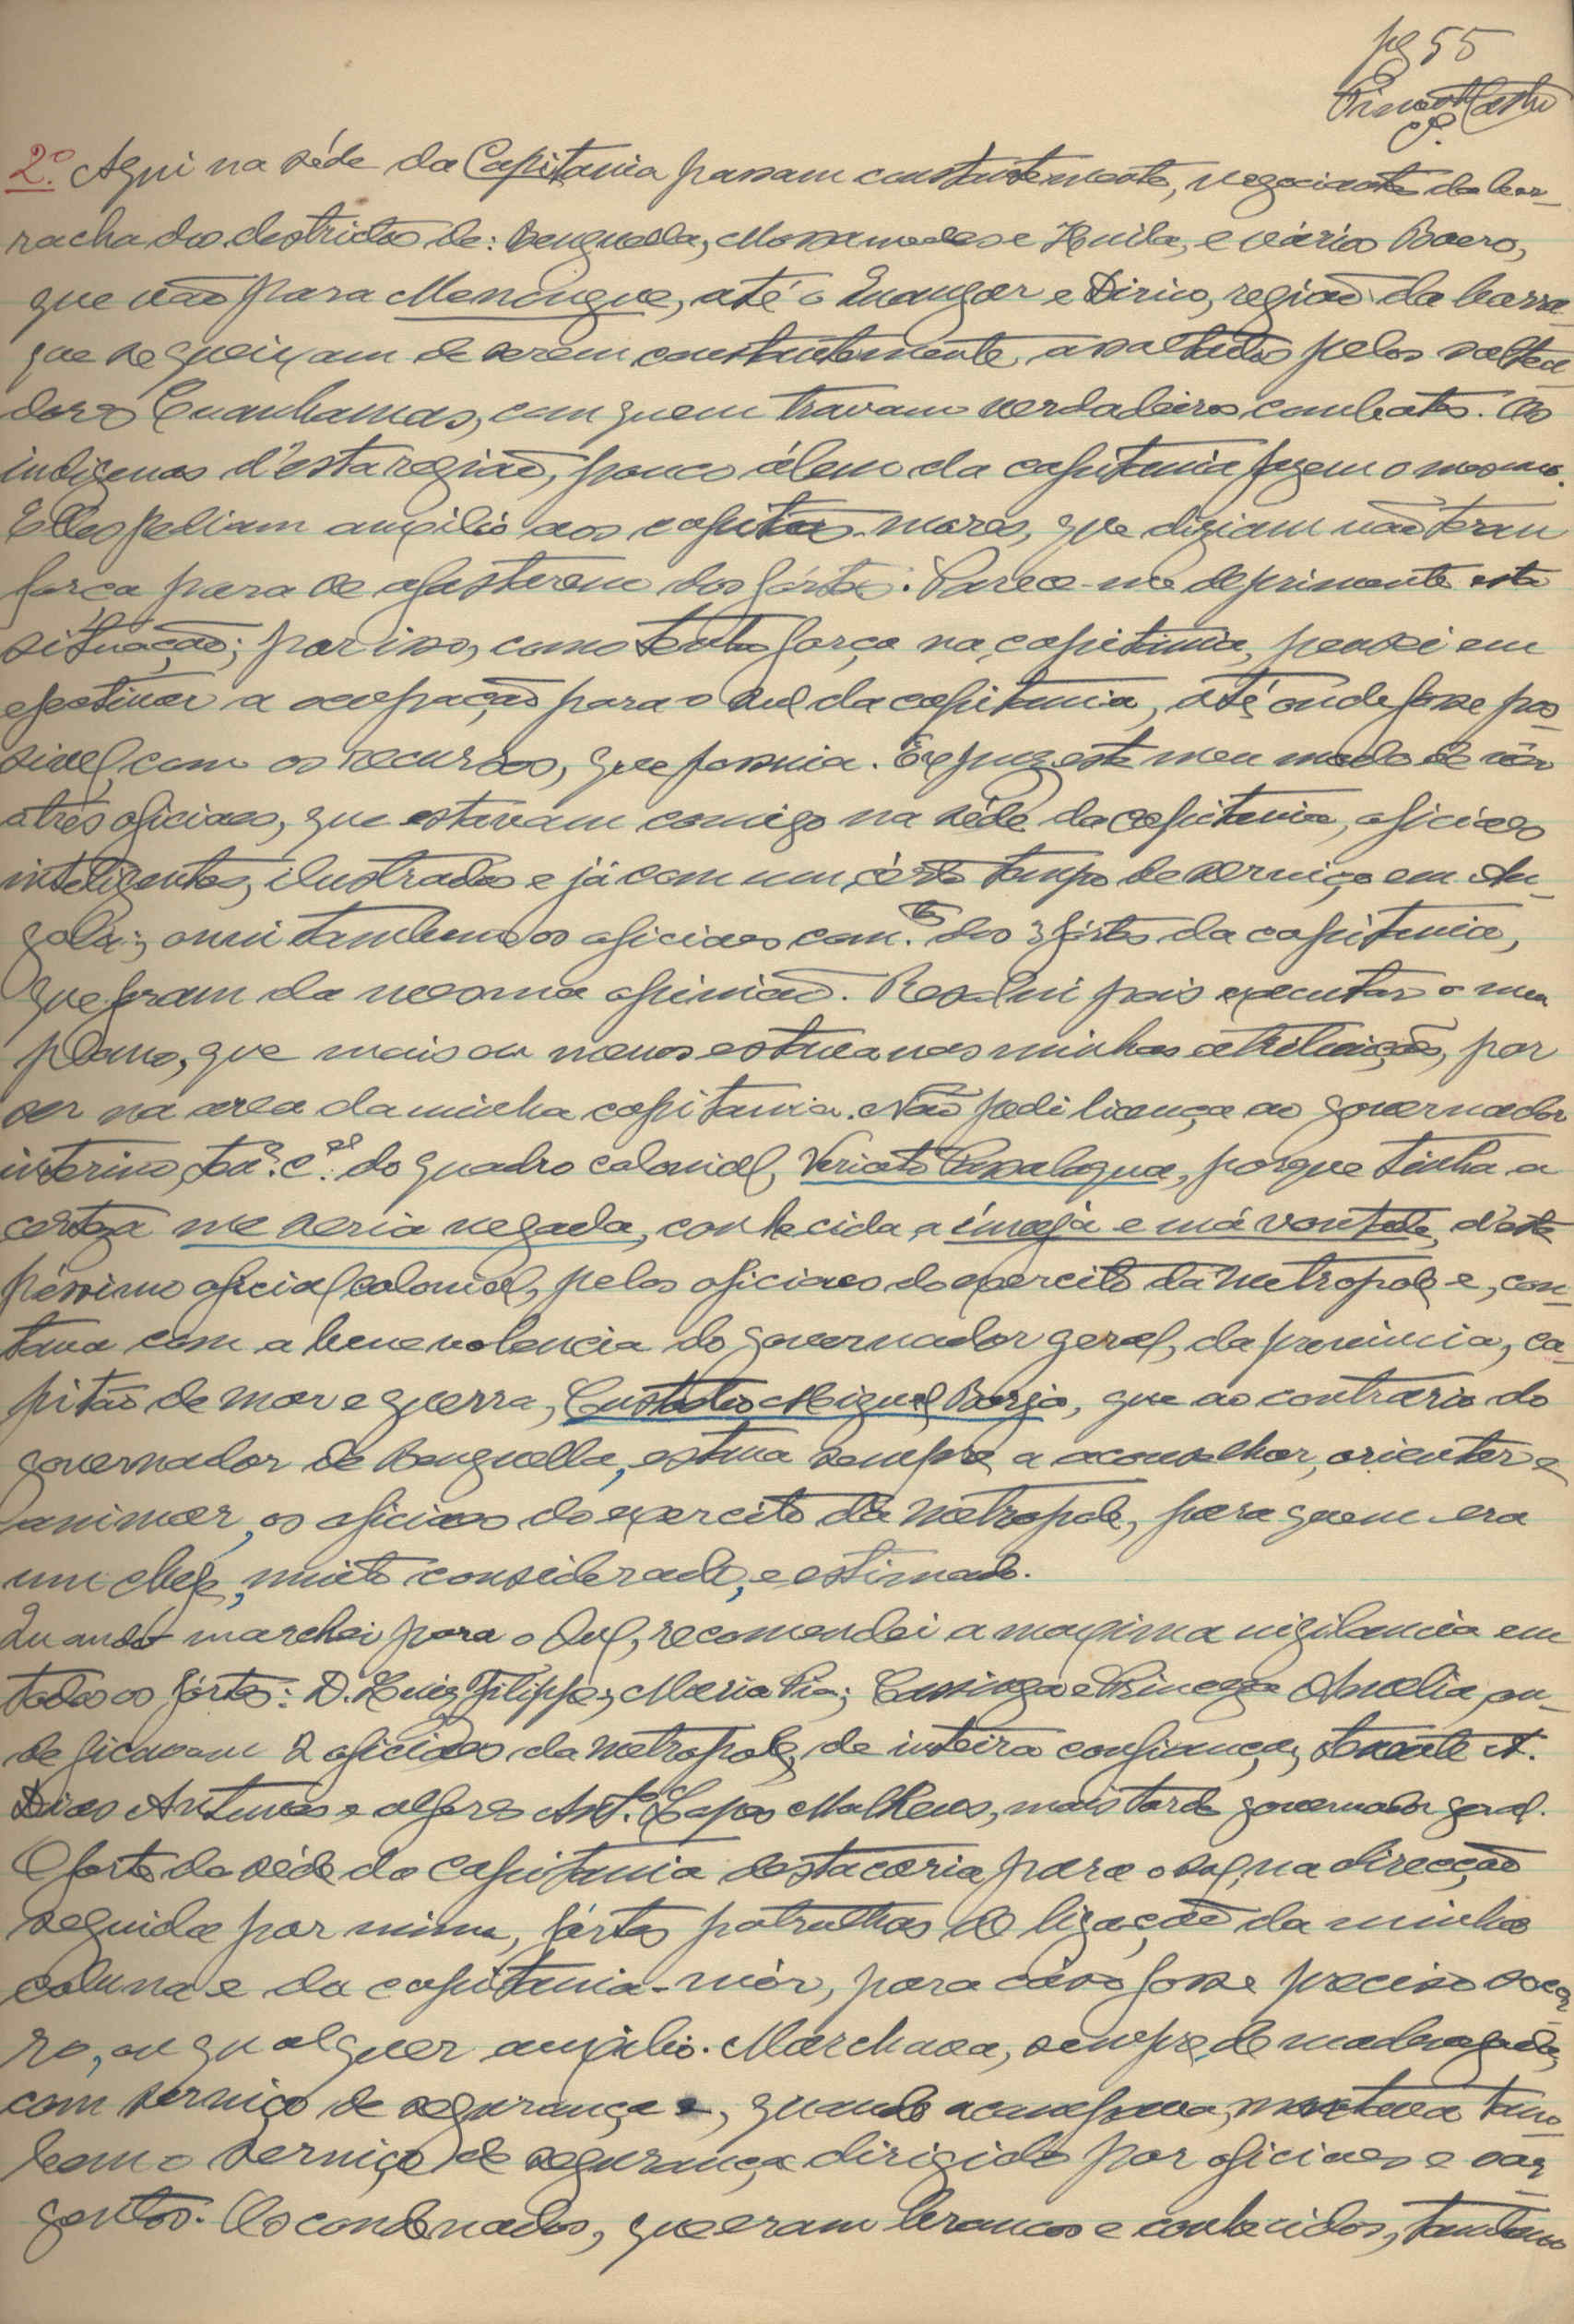 pg 55
2.º Aqui na séde da Capitania passam constantemente, negociantes da bor-
racha dos districtos de: Benguella, Mossamedes e Huila, e vários Boers,
que vão para Menongue, até o Cuangar e Dirico, região da borra-
que se queixam de serem constantemente, assaltados pelos saltea-
dores Cuanhamas, com quem travam verdadeiros combates. Os
indigenas d'esta região, pouco álem da capitania fazem o mesmo.
Elles pediam auxilio aos capitães-mores, que diziam não terem
força para se afastarem dos fórtes. Parece-me deprimente esta
situação; por isso, como tenho força na capitania, pensei em
efectivar a ocupação para o sul da capitania, até onde fosse pos-
sivel, com os recursos, que possuia. Expuz este meu modo de vêr
a três oficiaes, que estavam comigo na séde da capitania, oficiaes
inteligentes, ilustrados e já com um, cérto tempo de serviço em An-
gola; ouvi tambem os oficiaes com.tes dos 3 fórtes da capitania,
que foram da mesma opinião. Resolvi pois executar o meu
plano, que mais ou menos estava nas minhas atribuições, por
ser na area da minha capitania. Não pedi licença ao governador
interino, ten.e c.el do quadro colonial, Veriato Passalaqua, porque tinha a
certeza me seria negada, conhecida a inveja e má vontade, d'este
péssimo oficial colonial, pelos oficiaes do exercito da metropole e, con-
tava com a benevolencia do governador geral, da provincia, ca-
pitão de mar e guerra, Custodio Miguel Borja, que ao contrário do
governador de Benguella, estava sempre a aconselhar, orientar e
animar, os oficiaes do exercito da metropole, para quem era
um chefe, muito considerado, e estimado.
Quando marchei para o Sul, recomendei a maxima vigilancia em
todos os fórtes: D. Luiz Filippe; Maria Pia; Cassinga e Princeza Amelia, on-
de ficavam 2 oficiaes da metropole, de inteira confiança, tenente A.
Dias Antunes e alferes Ant.º Lopes Matheus, mais tarde governador geral.
O forte da séde da capitania destacaria para o sul, na direcção
seguida por mim, fórtes patrulhas de ligação da minha
coluna e da capitania-mór, para cáso fosse preciso socor-
ro, ou qualquer auxilio. Marchava, sempre de madrugada,
com serviço de segurança e, quando acampava, montava tam-
bem o serviço de segurança dirigido por oficiaes e sar-
gentos. Os condenados, que eram brancos e conhecidos, tambem